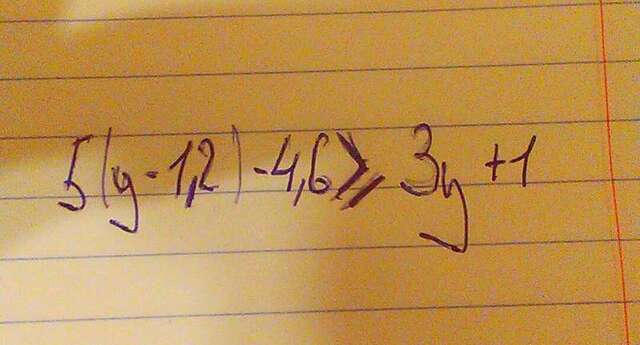 5(y-1,2)-4,6≥3y+1